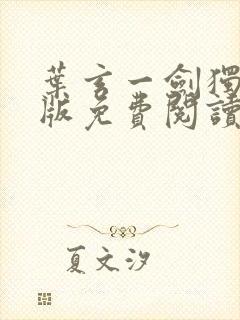 葉玄一劍獨
版免費閱讀
夏文汐